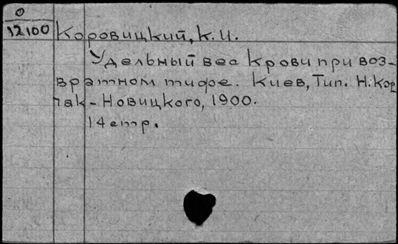 0
12100
Коровицкий, К. И.
Удельный вес крови при воз-
вратном тифе. Киев, Тип. Н. Кор
чак-Новицкого, 1900.
14 стр.